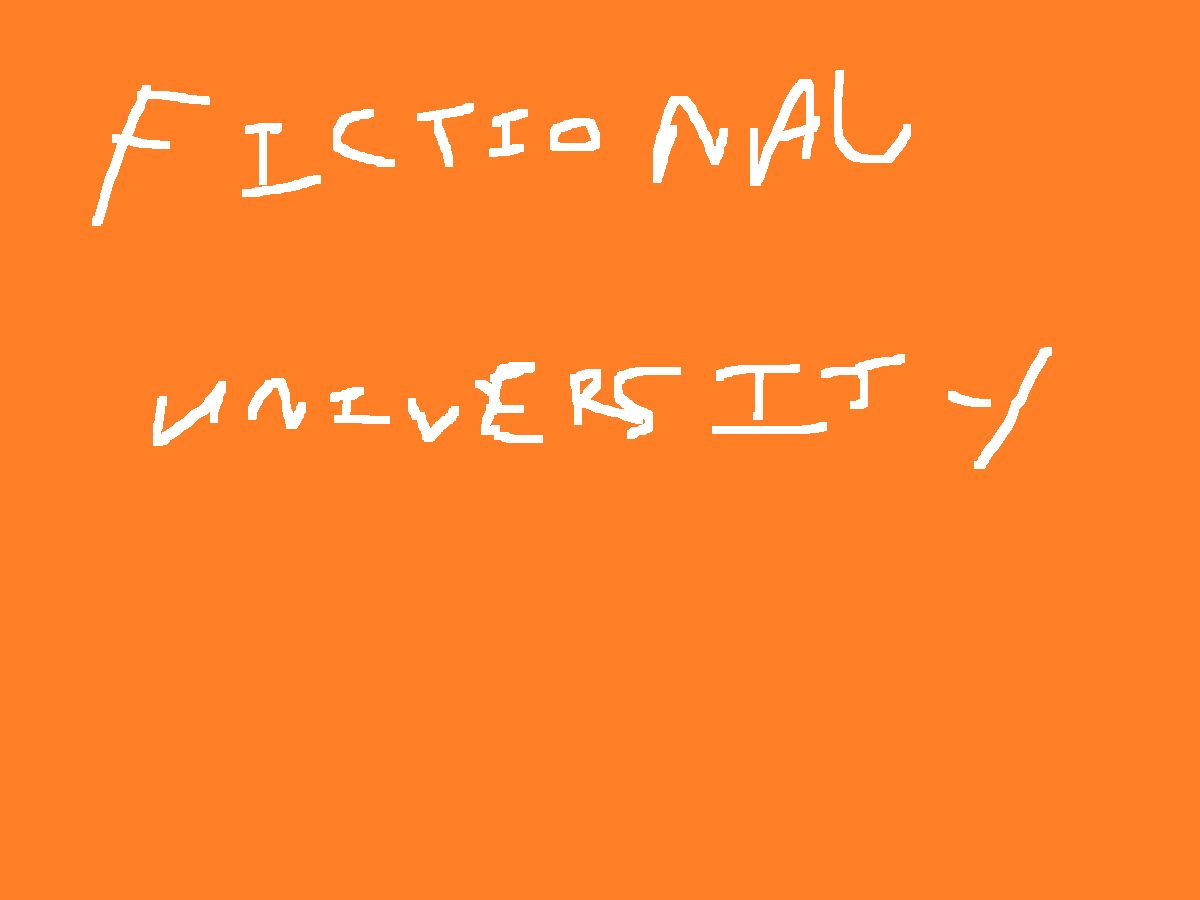 FICTIONAL
UNIVERSITY